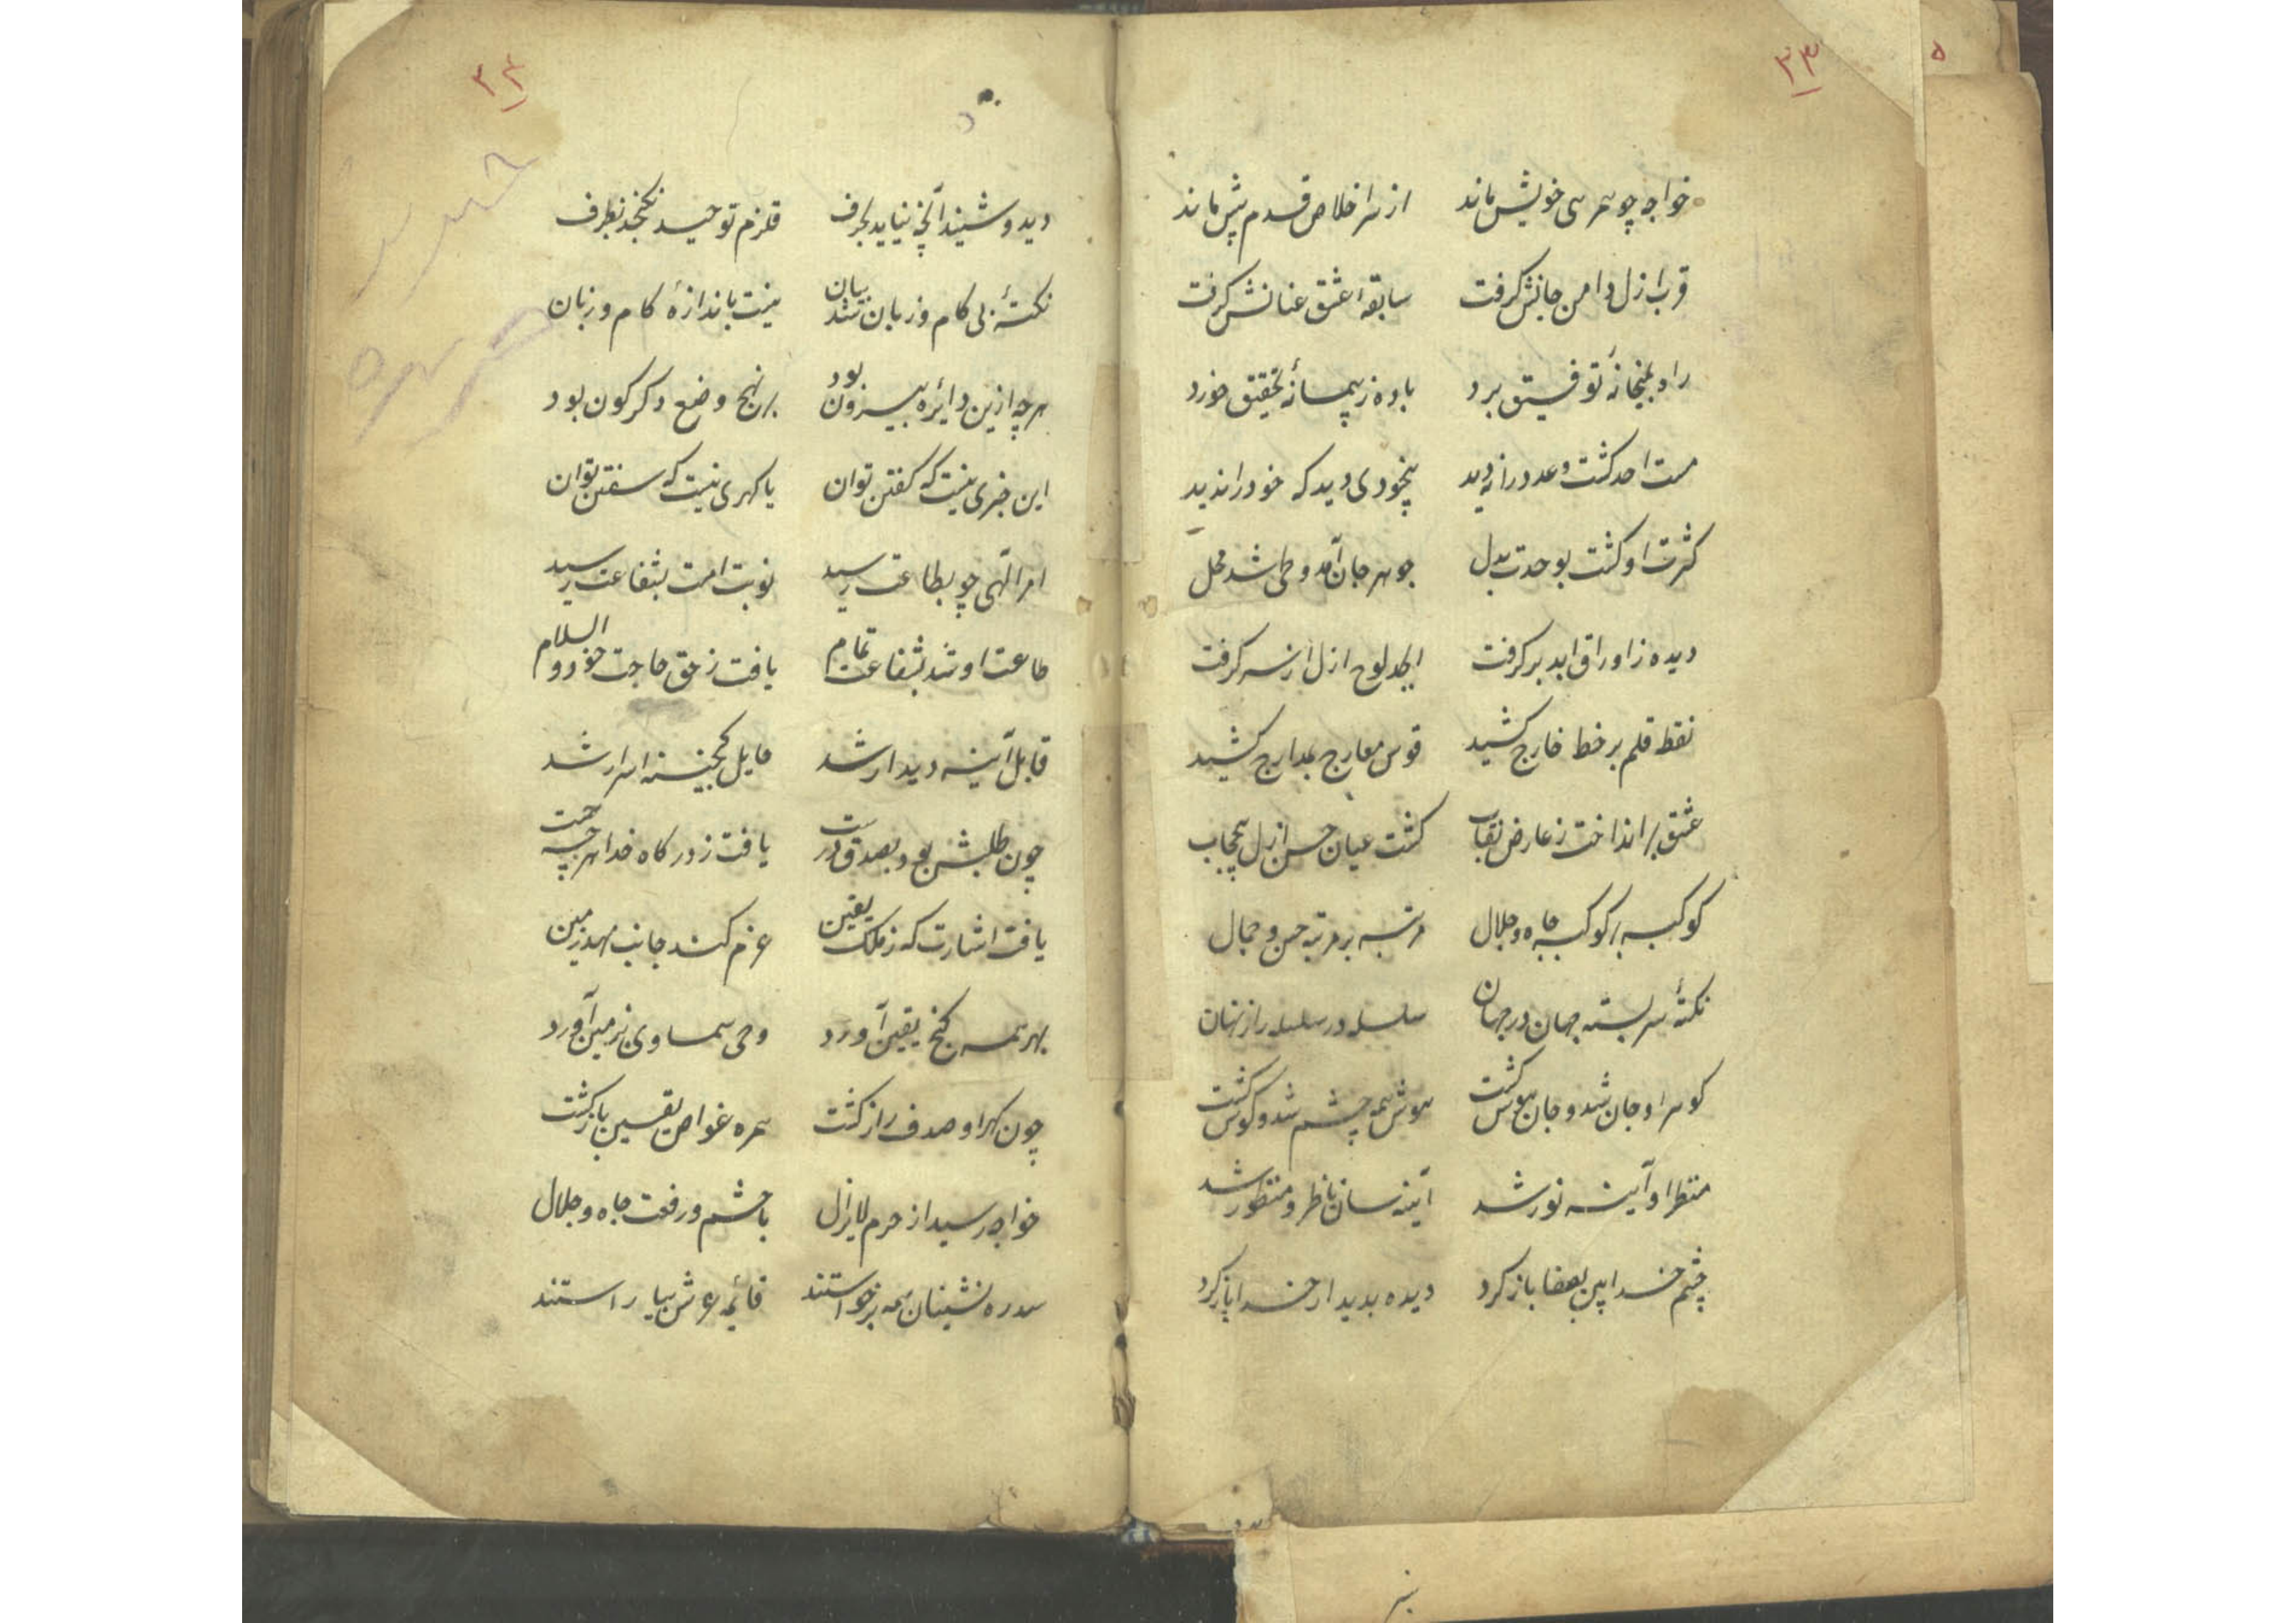 ۳۳
خواجه چو همرهی خویش ماند از سر اخلاص قدم پیش ماند
قرب ازل دامن جانش گرفت سابقه عشق عنانش گرفت
راه بمیخانهٔ توفیق برد باده ز پیمانهٔ تحقیق خورد
مست احد گشت و عدد را ندید بیخودی دید که خود را ندید
کثرت او گشت بوحدت بدل جوهر جان آمد و طی شد محل
دیده ز اوراق ابد برگرفت ابجد لوح ازل از سر گرفت
نقط قلم بر خط خارج کشید قوس معارج بمدارج کشید
عشق برانداخت ز عارض نقاب گشت عیان حسن ازل بیحجاب
کوکبه بر کوکبه جاه و جلال مرتبه بر مرتبه حسن و جمال
نکتهٔ سربسته جهان در جهان سلسله در سلسله راز نهان
گوهر او جان شد و جان هوش گشت هوش همه چشم شد و گوش گشت
منظر او آینه نور شد آینه سان ناظر و منظور شد
چشم خدا بین بصفا باز کرد دیده بدیدار خدا باز کرد
۳۴
دید و شنید آنچه نیاید بحرف قلزم توحید نگنجد بظرف
نکتهٔ بی کام و زبان شد بیان نیست باندازهٔ کام و زبان
هرچه ازین دائره بیرون بود بر نهج وضع دگرگون بود
این خبری نیست که گفتن توان یا گهری نیست که سفتن توان
امر الهی چو بطاعت رسید نوبت امت بشفاعت رسید
طاعت او شد بشفاعت تمام یافت ز حق حاجت خود والسلام
قابل آینه دیدار شد حایل گنجینه اسرار شد
چون طلبش بود بصدق درست یافت ز درگاه خدا هرچه جست
یافت اشارت که ز ملک یقین عزم کند جانب مهد زمین
بهر همه گنج یقین آورد وحی سماوی بزمین آورد
چون گهر او صدف راز گشت همره غواص یقین باز گشت
خواجه رسید از حرم لایزال با حشم و رفعت جاه و جلال
سدره نشینان همه برخواستند قائمه عرش بیاراستند